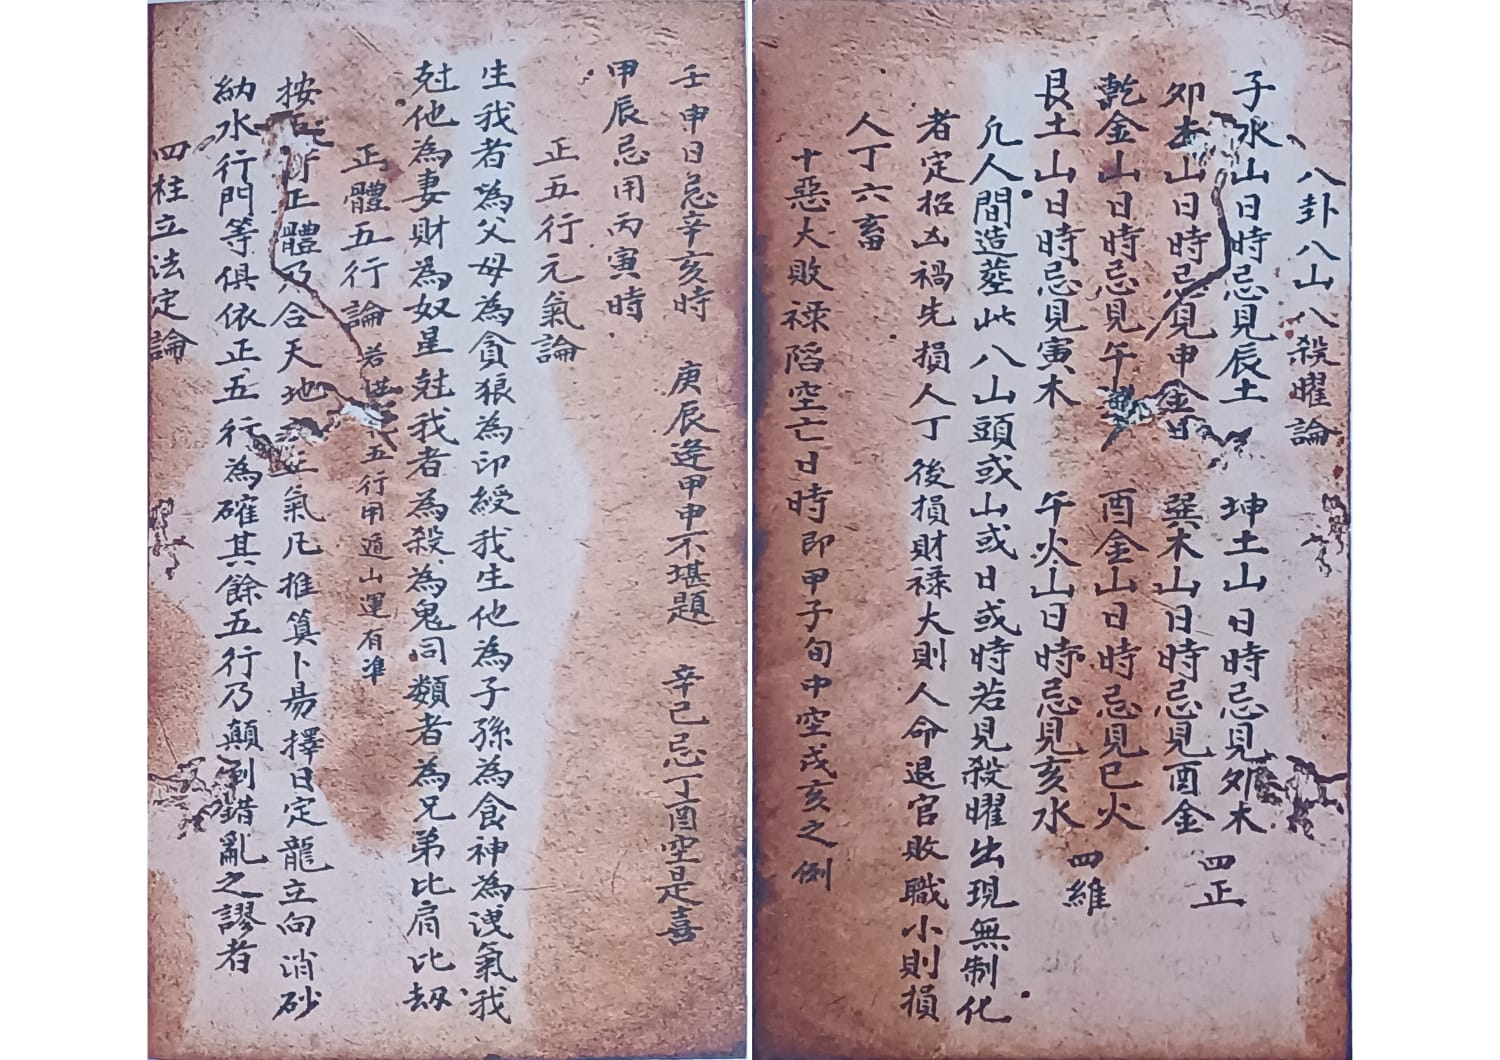 八卦八山八殺曜論
子水山日時忌見辰土 坤土山日時忌見夘木 四正
夘木山日時忌見申金 巽木山日時忌見酉金
乾金山日時忌見午 酉金山日時忌見巳火 四維
艮土山日時忌見寅木 午火山日時忌見亥水
凡人間造塟此八山頭或山或日或時若見殺曜出現無制化
者定招凶禍先損人丁後損財祿大則人命退官敗職小則損
人丁六畜
十惡大敗祿陷空亡日時即甲子旬中空戌亥之例
壬申日忌辛亥時 庚辰逢甲申不堪題 辛巳忌丁酉空是喜
甲辰忌用丙寅時
正五行元氣論
生我者為父母為貪狼為印綬我生他為子孫為食神為洩氣我
尅他為妻財為奴星尅我者為殺為鬼同類者為兄弟比肩比刼
正體五行論 若 五行用遁山運有準
按 正體乃合天地 正氣凡推算卜昜擇日定龍立向消砂
納水行門等俱依正五行為確其餘五行乃顛倒錯亂之謬者
四柱立法定論